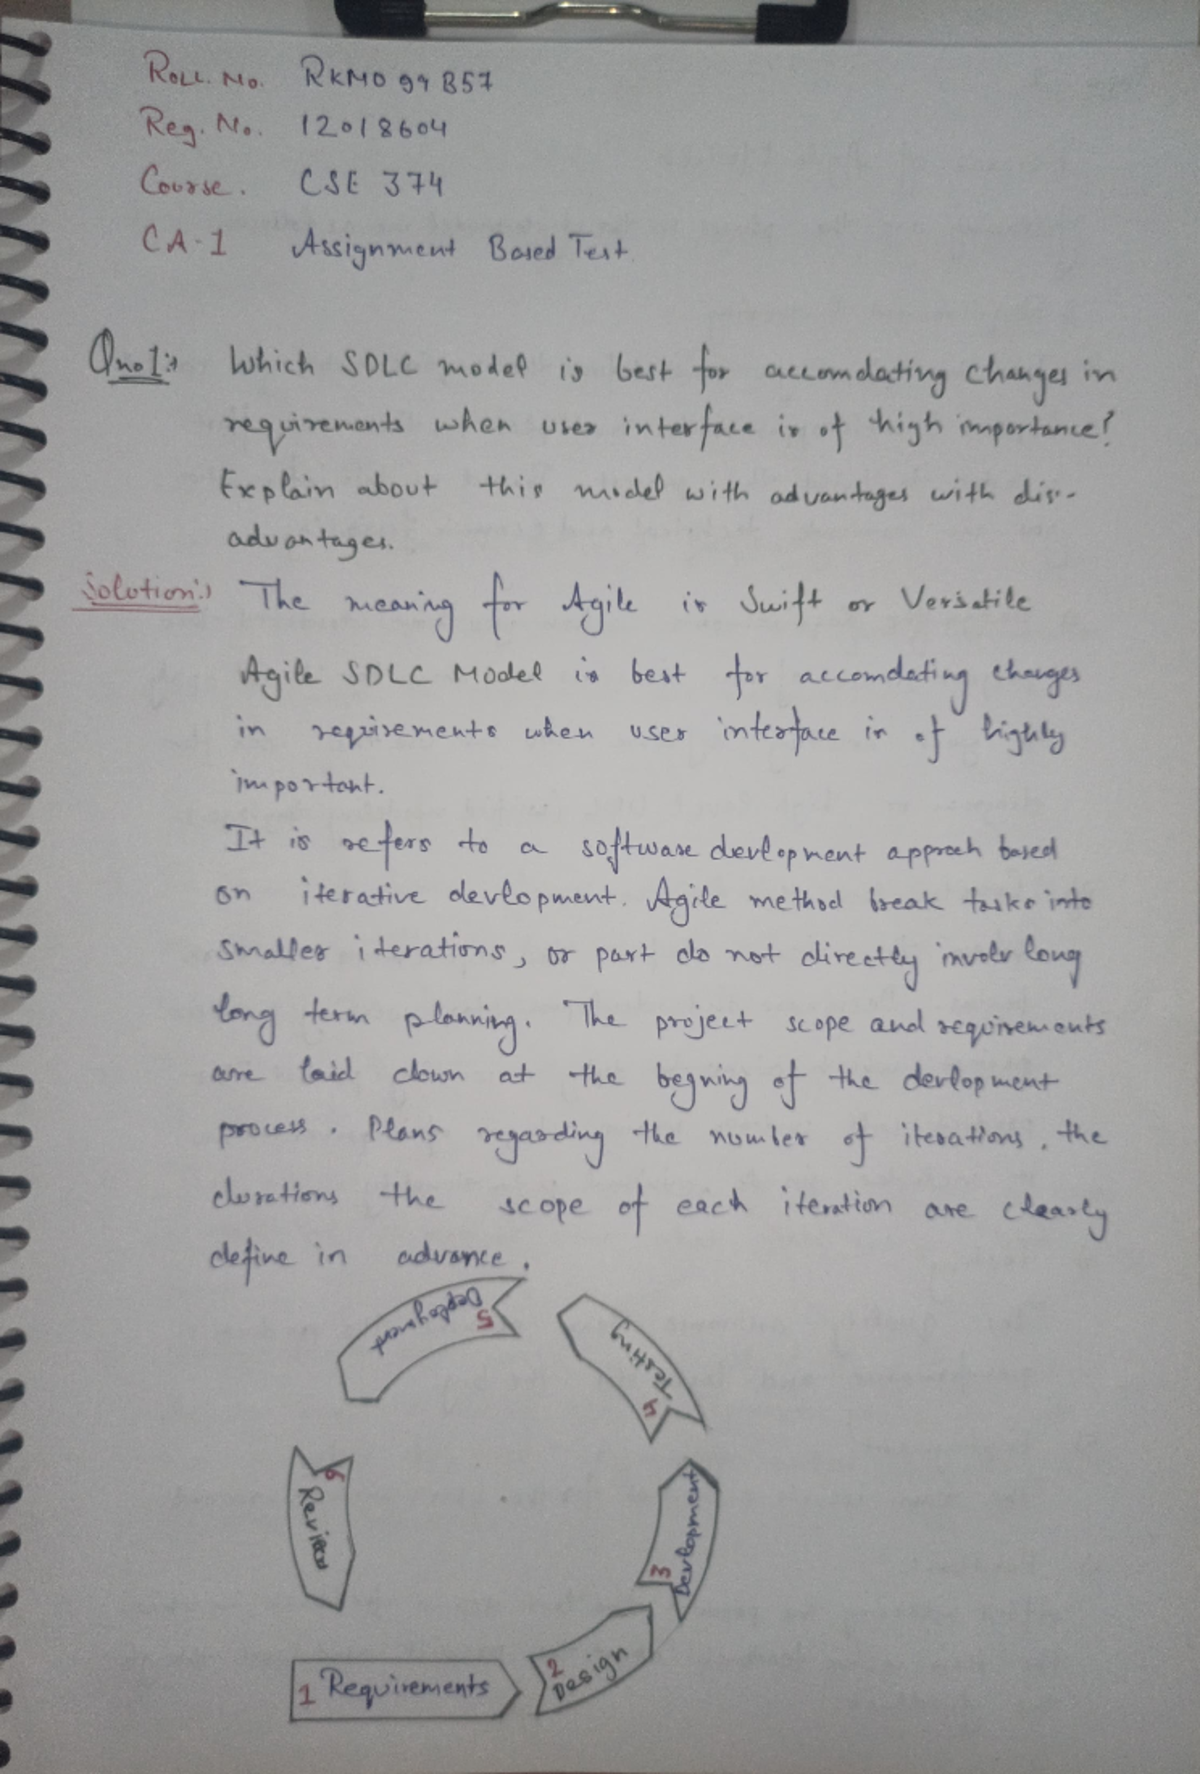 Roll. No. RKMO99B57
Reg. No. 12018604
Course. CSE 374
CA-1 Assignment Based Test.
Qno1:→ Which SDLC model is best for accomdating changes in
requirements when user interface is of high importance?
Explain about this model with advantages with dis-
advantages.
Solution:→ The meaning for Agile is Swift or Versatile
Agile SDLC Model is best for accomdating changes
in requirements when user interface is of highly
important.
It is refers to a software devlopment approch based
on iterative devlopment. Agile method break tasks into
smaller iterations, or part do not directly involv long
long term planning. The project scope and requirements
are laid down at the begning of the devlopment
process. Plans regarding the number of iterations, the
durations the scope of each iteration are clearly
define in advance.
5 Deployment
4 Testing
6 Review
3 Devlopment
2 Design
1 Requirements